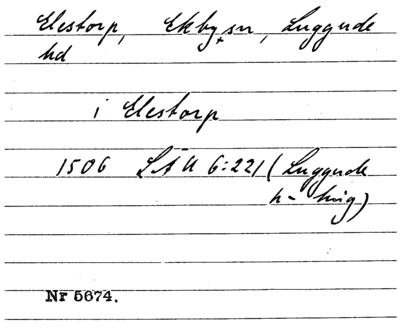 Elestorp, Ekby sn, Luggude
hd
i Elestorp
1506 LÄU 6:221 (Luggude
h- ting)
Nr 5674.